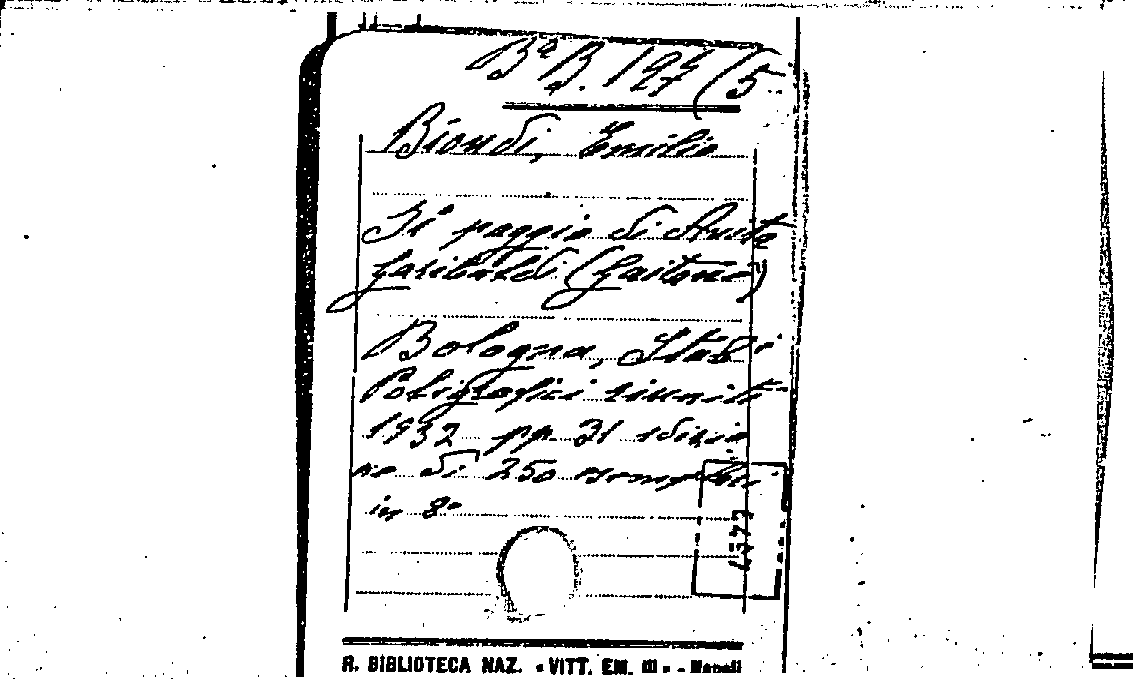 Bª B. 197 (5
Biondi, Emilio
Il paggio di Anita
Garibaldi (Gaitano)
Bologna, Stab.i
Poligrafici riuniti
1932 pp. 31 edizio
ne di 250 esemplari
in 8º
R. BIBLIOTECA NAZ. « VITT. EM. III » - Napoli